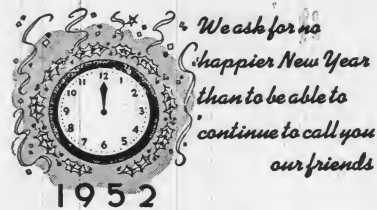 We ask for no
happier New Year
than to be able to
continue to call you
our friends
12
1
2
3
4
5
6
7
8
9
10
11
1952